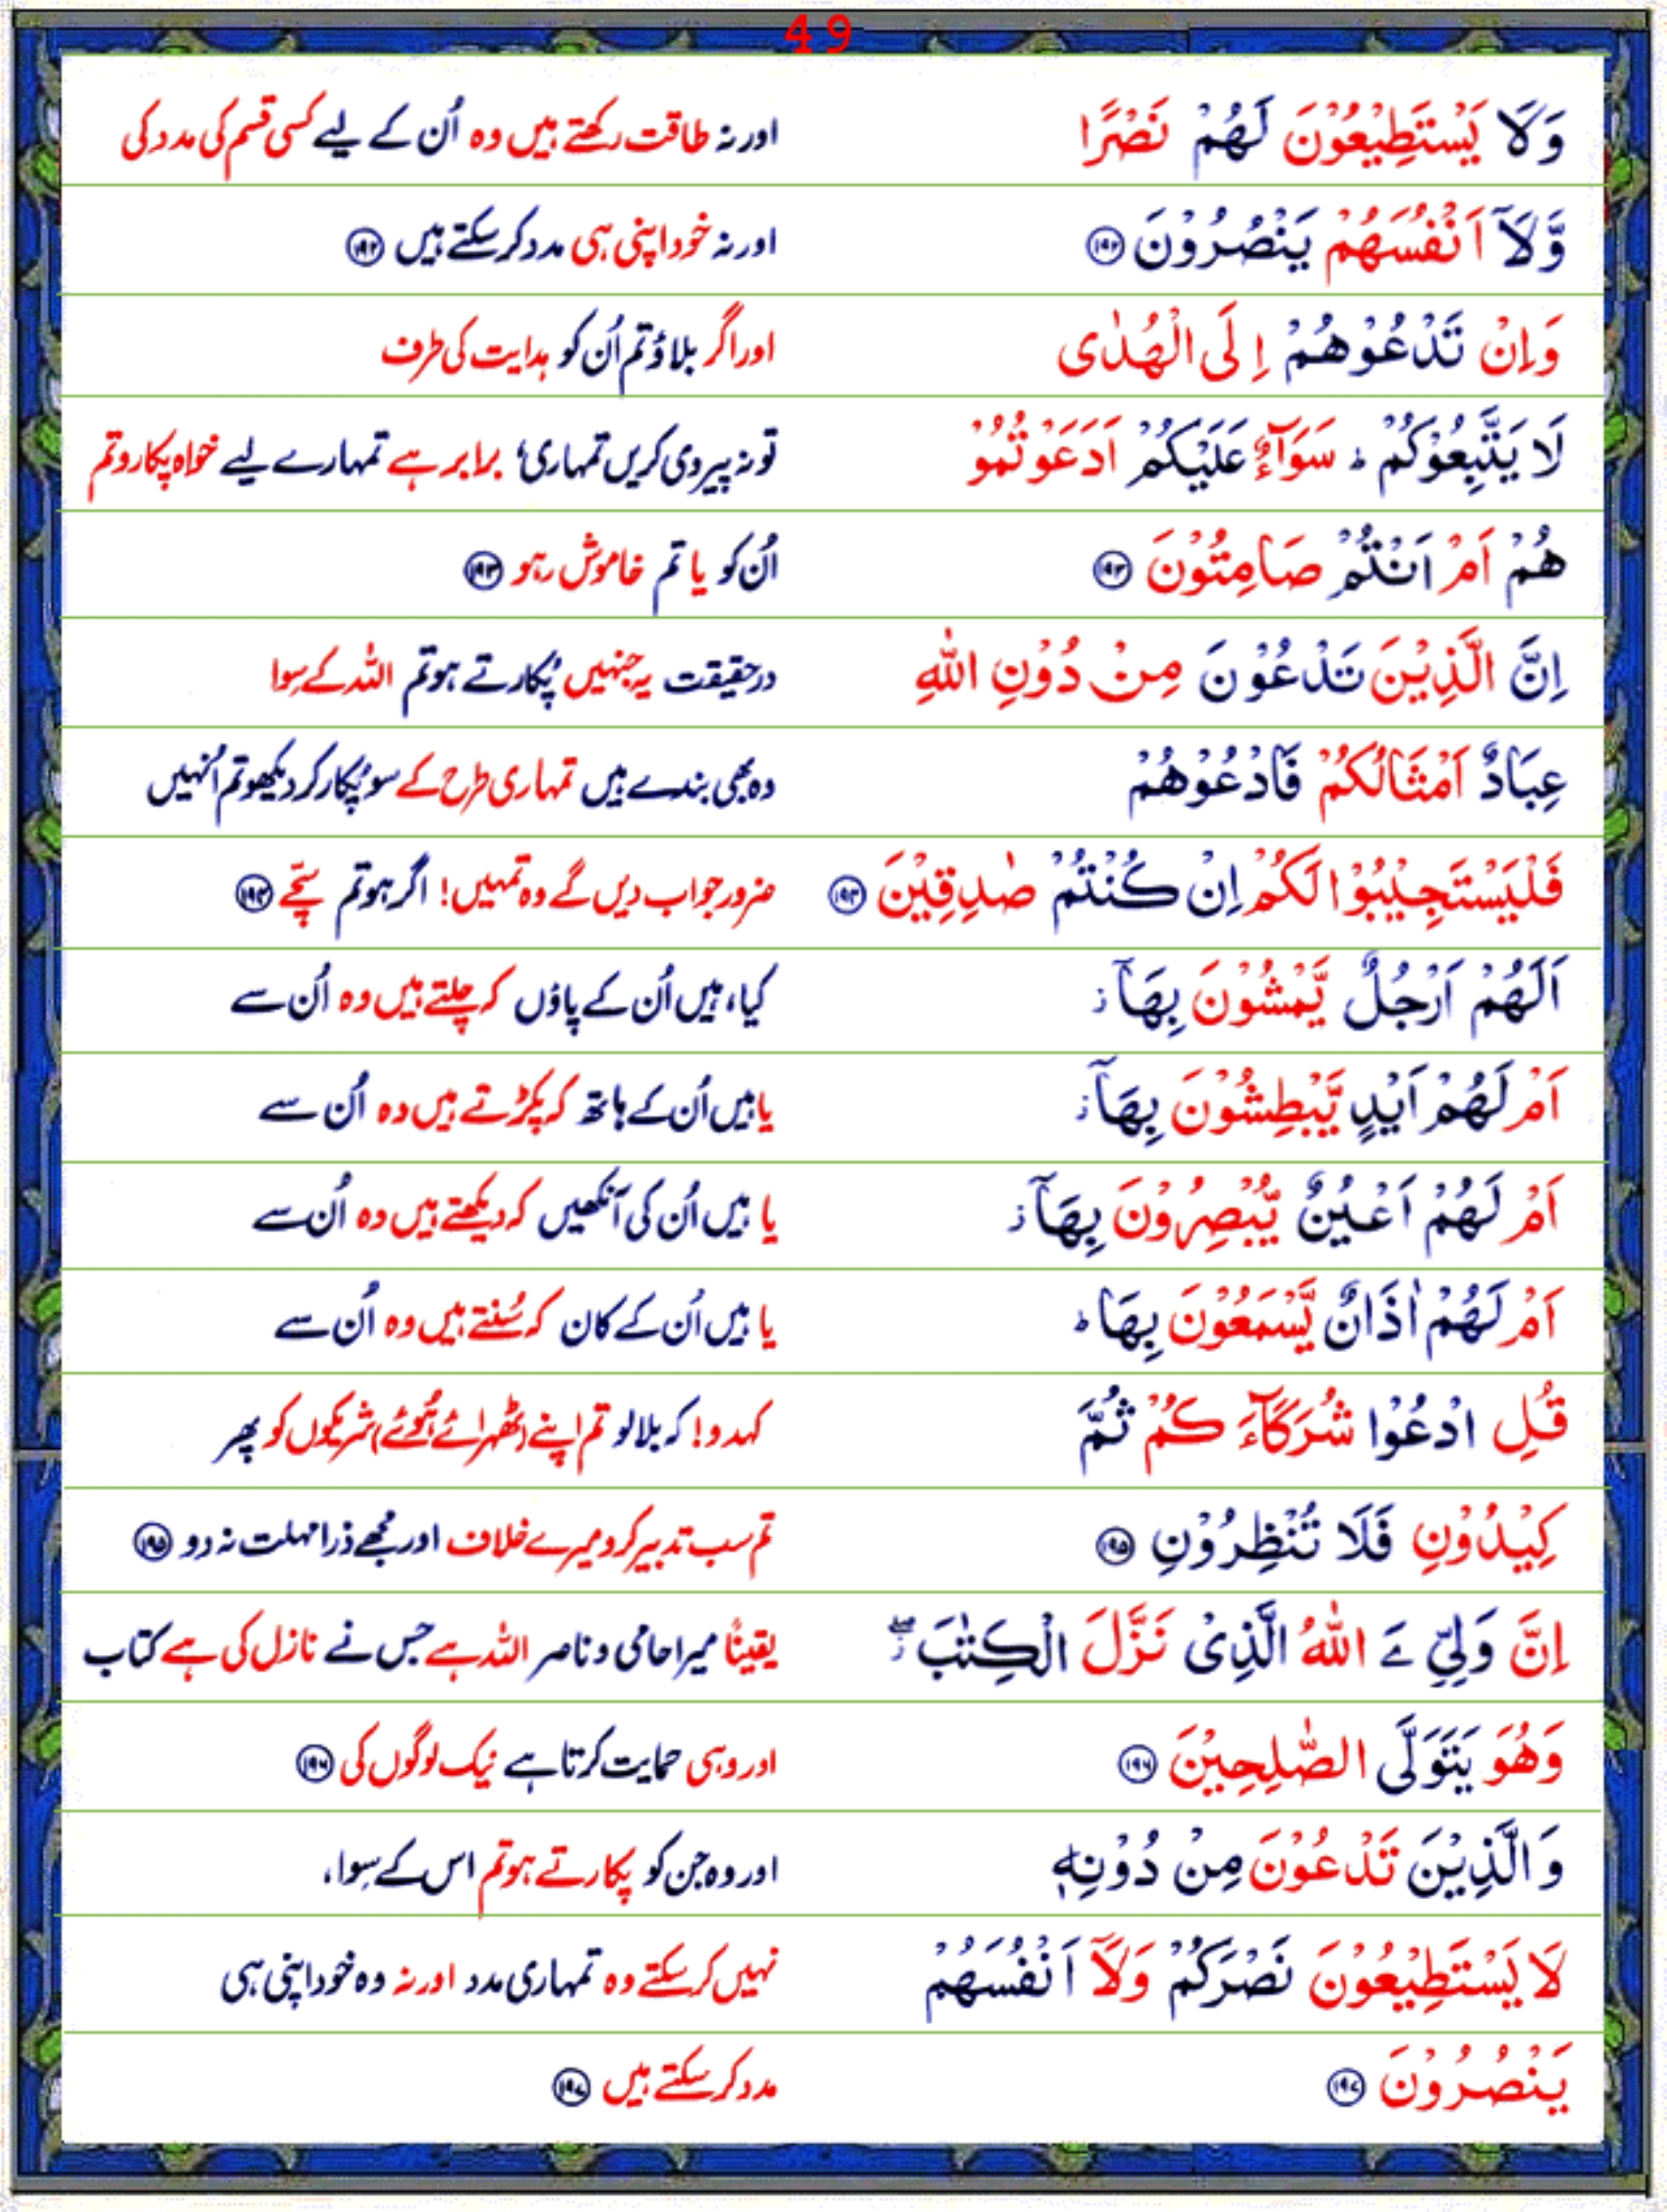 49
وَلَا يَسْتَطِيْعُوْنَ لَهُمْ نَصْرًا اور نہ طاقت رکھتے ہیں وہ اُن کے لیے کسی قسم کی مدد کی
وَّلَاۤ اَنْفُسَهُمْ يَنْصُرُوْنَ ۱۹۲ اور نہ خود اپنی ہی مدد کر سکتے ہیں ۱۹۲
وَاِنْ تَدْعُوْهُمْ اِلَى الْهُدٰى اور اگر بلاؤ تم اُن کو ہدایت کی طرف
لَا يَتَّبِعُوْكُمْ ؕ سَوَآءٌ عَلَيْكُمْ اَدَعَوْتُمُوْ تو نہ پیروی کریں تمہاری، برابر ہے تمہارے لیے خواہ پکارو تم
هُمْ اَمْ اَنْتُمْ صَامِتُوْنَ ۱۹۳ اُن کو یا تم خاموش رہو ۱۹۳
اِنَّ الَّذِيْنَ تَدْعُوْنَ مِنْ دُوْنِ اللّٰهِ درحقیقت یہ جنہیں پُکارتے ہو تم اللہ کے سِوا
عِبَادٌ اَمْثَالُكُمْ فَادْعُوْهُمْ وہ بھی بندے ہیں تمہاری طرح کے سو پُکار کر دیکھو تم اُنہیں
فَلْيَسْتَجِيْبُوْا لَكُمْ اِنْ كُنْتُمْ صٰدِقِيْنَ ۱۹۴ ضرور جواب دیں گے وہ تمہیں! اگر ہو تم سچّے ۱۹۴
اَلَهُمْ اَرْجُلٌ يَّمْشُوْنَ بِهَاۤ ز کیا، ہیں اُن کے پاؤں کہ چلتے ہیں وہ اُن سے
اَمْ لَهُمْ اَيْدٍ يَّبْطِشُوْنَ بِهَاۤ ز یا ہیں اُن کے ہاتھ کہ پکڑتے ہیں وہ اُن سے
اَمْ لَهُمْ اَعْيُنٌ يُّبْصِرُوْنَ بِهَاۤ ز یا ہیں اُن کی آنکھیں کہ دیکھتے ہیں وہ اُن سے
اَمْ لَهُمْ اٰذَانٌ يَّسْمَعُوْنَ بِهَا ؕ یا ہیں اُن کے کان کہ سُنتے ہیں وہ اُن سے
قُلِ ادْعُوْا شُرَكَآءَ كُمْ ثُمَّ کہدو! کہ بلا لو تم اپنے (ٹھہرائے ہُوئے) شریکوں کو پھر
كِيْدُوْنِ فَلَا تُنْظِرُوْنِ ۱۹۵ تم سب تدبیر کرو میرے خلاف اور مجھے ذرا مہلت نہ دو ۱۹۵
اِنَّ وَلِيِّ ۦَ اللّٰهُ الَّذِىْ نَزَّلَ الْكِتٰبَ ۖز یقیناً میرا حامی و ناصر اللہ ہے جس نے نازل کی ہے کتاب
وَهُوَ يَتَوَلَّى الصّٰلِحِيْنَ ۱۹۶ اور وہی حمایت کرتا ہے نیک لوگوں کی ۱۹۶
وَالَّذِيْنَ تَدْعُوْنَ مِنْ دُوْنِهٖ اور وہ جن کو پکارتے ہو تم اس کے سِوا،
لَا يَسْتَطِيْعُوْنَ نَصْرَكُمْ وَلَاۤ اَنْفُسَهُمْ نہیں کر سکتے وہ تمہاری مدد اور نہ وہ خود اپنی ہی
يَنْصُرُوْنَ ۱۹۷ مدد کر سکتے ہیں ۱۹۷